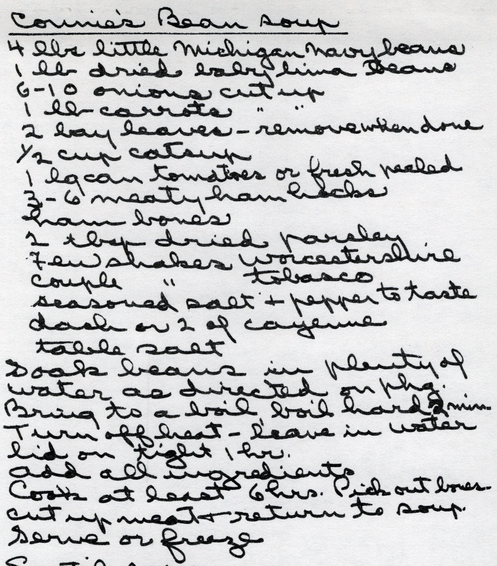 Connie's Bean soup
4 lbs little Michigan navy beans
1 lb dried baby lima Beans
6-10 onions cut up
1 lb carrots " "
2 bay leaves - remove when done
1/2 cup catsup
1 lg can tomatoes or fresh peeled
3-6 meaty ham hocks
ham bones
2 tbsp dried parsley
Few shakes Worcestershire
couple " tobasco
seasoned salt + pepper to taste
dash or 2 of cayenne
table salt
Soak beans in plenty of
water as directed on pkg.
Bring to a boil boil hard 2 min.
Turn off heat - leave in water
lid on tight 1 hr.
add all ingredients
Cook at least 6 hrs. Pick out bones.
cut up meat + return to soup.
Serve or freeze